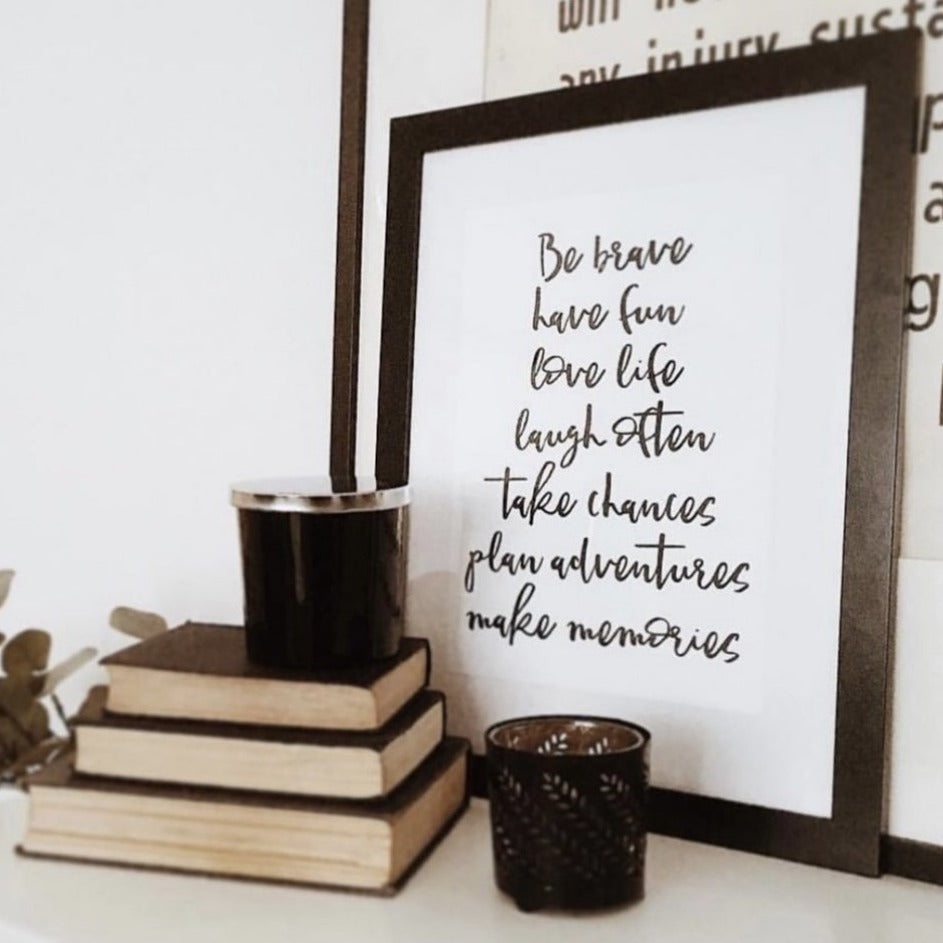 any injury susta
Be brave
have fun
love life
laugh often
take chances
plan adventures
make memories